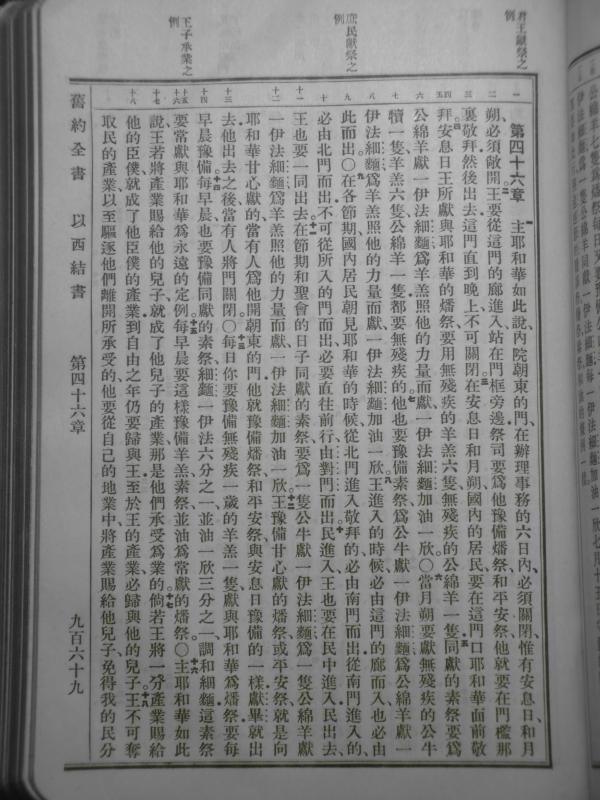 君王獻祭之
例
庶民獻祭之
例
王子承業之
例
第四十六章　主耶和華如此說、內院朝東的門、在辦理事務的六日內、必須關閉、惟有安息日和月
朔、必須敞開。王要從這門的廊進入、站在門框旁邊、祭司要爲他豫備燔祭和平安祭、他就要在門檻那
裏敬拜、然後出去、這門直到晚上不可關閉。在安息日和月朔、國內的居民要在這門口、耶和華面前敬
拜。安息日王所獻與耶和華的燔祭、要用無殘疾的羊羔六隻、無殘疾的公綿羊一隻、同獻的素祭要爲
公綿羊獻一伊法細麵、爲羊羔照他的力量而獻、一伊法細麵加油一欣。〇當月朔要獻無殘疾的公牛
犢一隻、羊羔六隻、公綿羊一隻、都要無殘疾的。他也要豫備素祭、爲公牛獻一伊法細麵、爲公綿羊獻一
伊法細麵、爲羊羔照他的力量而獻、一伊法細麵加油一欣。王進入的時候、必由這門的廊而入、也必由
此而出。〇在各節期、國內居民朝見耶和華的時候、從北門進入敬拜的、必由南門而出、從南門進入的、
必由北門而出、不可從所入的門而出、必要直往前行、由對門而出。民進入、王也要在民中進入、民出去、
王也要一同出去。在節期和聖會的日子、同獻的素祭、要爲一隻公牛獻一伊法細麵、爲一隻公綿羊獻
一伊法細麵、爲羊羔照他的力量而獻、一伊法細麵加油一欣。王豫備甘心獻的燔祭、或平安祭、就是向
耶和華甘心獻的、當有人爲他開朝東的門、他就豫備燔祭和平安祭、與安息日豫備的一樣、獻畢就出
去、他出去之後、當有人將門關閉。〇每日你要豫備無殘疾一歲的羊羔一隻、獻與耶和華爲燔祭、要每
早晨豫備。每早晨也要豫備同獻的素祭、細麵一伊法六分之一、並油一欣三分之一、調和細麵、這素祭
要常獻與耶和華爲永遠的定例。每早晨要這樣豫備羊羔、素祭、並油、爲常獻的燔祭。〇主耶和華如此
說、王若將產業賜給他的兒子、就成了他兒子的產業、那是他們承受爲業的。倘若王將一分產業賜給
他的臣僕、就成了他臣僕的產業、到自由之年仍要歸與王、至於王的產業、必歸與他的兒子。王不可奪
取民的產業、以至驅逐他們離開所承受的、他要從自己的地業中、將產業賜給他兒子、免得我的民分
舊約全書　以西結書　第四十六章　九百六十九